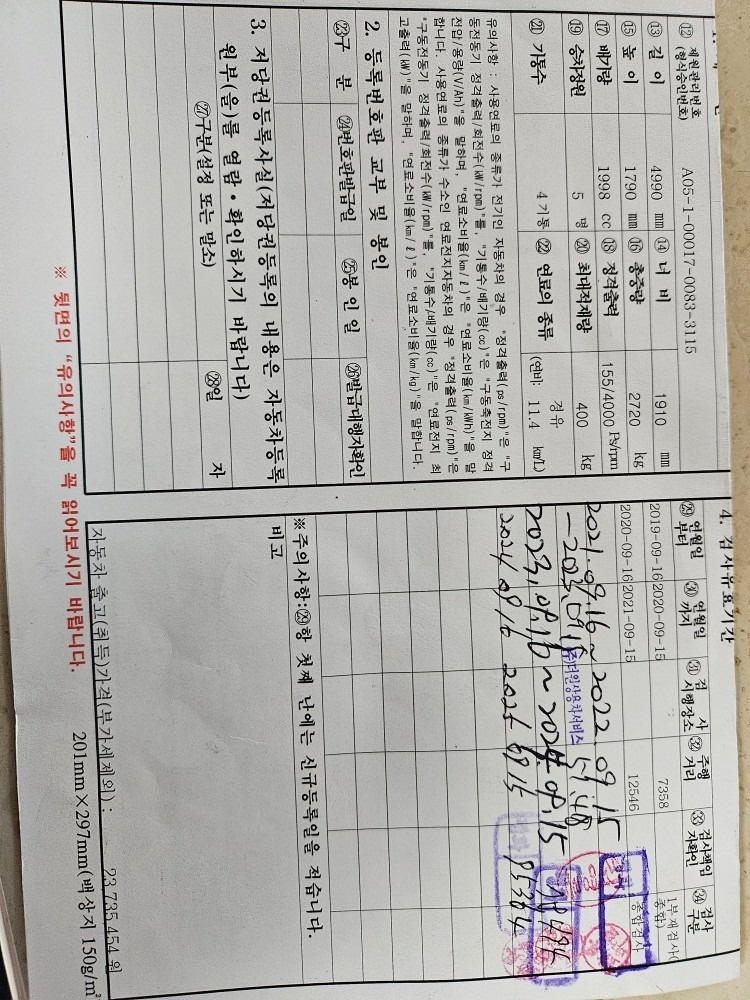 1. 제 원
⑫ 제원관리번호 (형식승인번호) A05-1-00017-0083-3115
⑬ 길 이 4990 mm ⑭ 너 비 1910 mm
⑮ 높 이 1790 mm ⑯ 총중량 2720 kg
⑰ 배기량 1998 cc ⑱ 정격출력 155/4000 Ps/rpm
⑲ 승차정원 5 명 ⑳ 최대적재량 400 kg
㉑ 기통수 4 기통 ㉒ 연료의 종류 경유 (연비: 11.4 km/L)
유의사항 : 사용연료의 종류가 전기인 자동차의 경우 "정격출력(ps/rpm)"은 "구
동전동기 정격출력/회전수(㎾/rpm)"를, "기통수/배기량(cc)"은 "구동축전지 정격
전압/용량(V/Ah)"을 말하며, "연료소비율(km/ℓ)"은 "연료소비율(km/kWh)"을 말
합니다. 사용연료의 종류가 수소인 연료전지자동차의 경우 "정격출력(ps/rpm)"은
"구동전동기 정격출력/회전수(㎾/rpm)"를, "기통수/배기량(cc)"은 "연료전지 최
고출력(㎾)"을 말하며, "연료소비율(km/ℓ)"은 "연료소비율(km/kg)"을 말합니다.
2. 등록번호판 교부 및 봉인
㉓구 분 ㉔번호판발급일 ㉕봉 인 일 ㉖발급대행자확인
3. 저당권등록사실(저당권등록의 내용은 자동차등록
원부(을)를 열람·확인하시기 바랍니다)
㉗구분(설정 또는 말소) ㉘일 자
※ 뒷면의 "유의사항"을 꼭 읽어보시기 바랍니다.
4. 검사유효기간
㉙ 연월일 부터 ㉚ 연월일 까지 ㉛ 검 사 시행장소 ㉜ 주행 거리 ㉝ 검사책임 자확인 ㉞ 검사 구분
2019-09-16 2020-09-15 7358 1부재검사(종합)
2020-09-16 2021-09-15 12546 종합검사
2021.09.16~2022.09.15
2023.09.16~2024.09.15
2024 09 16 2025 09 15
※주의사항:㉙항 첫째 난에는 신규등록일을 적습니다.
비고
자동차 출고(취득)가격(부가세제외) : 23,735,454 원
201mm×297mm(백상지 150g/㎡)